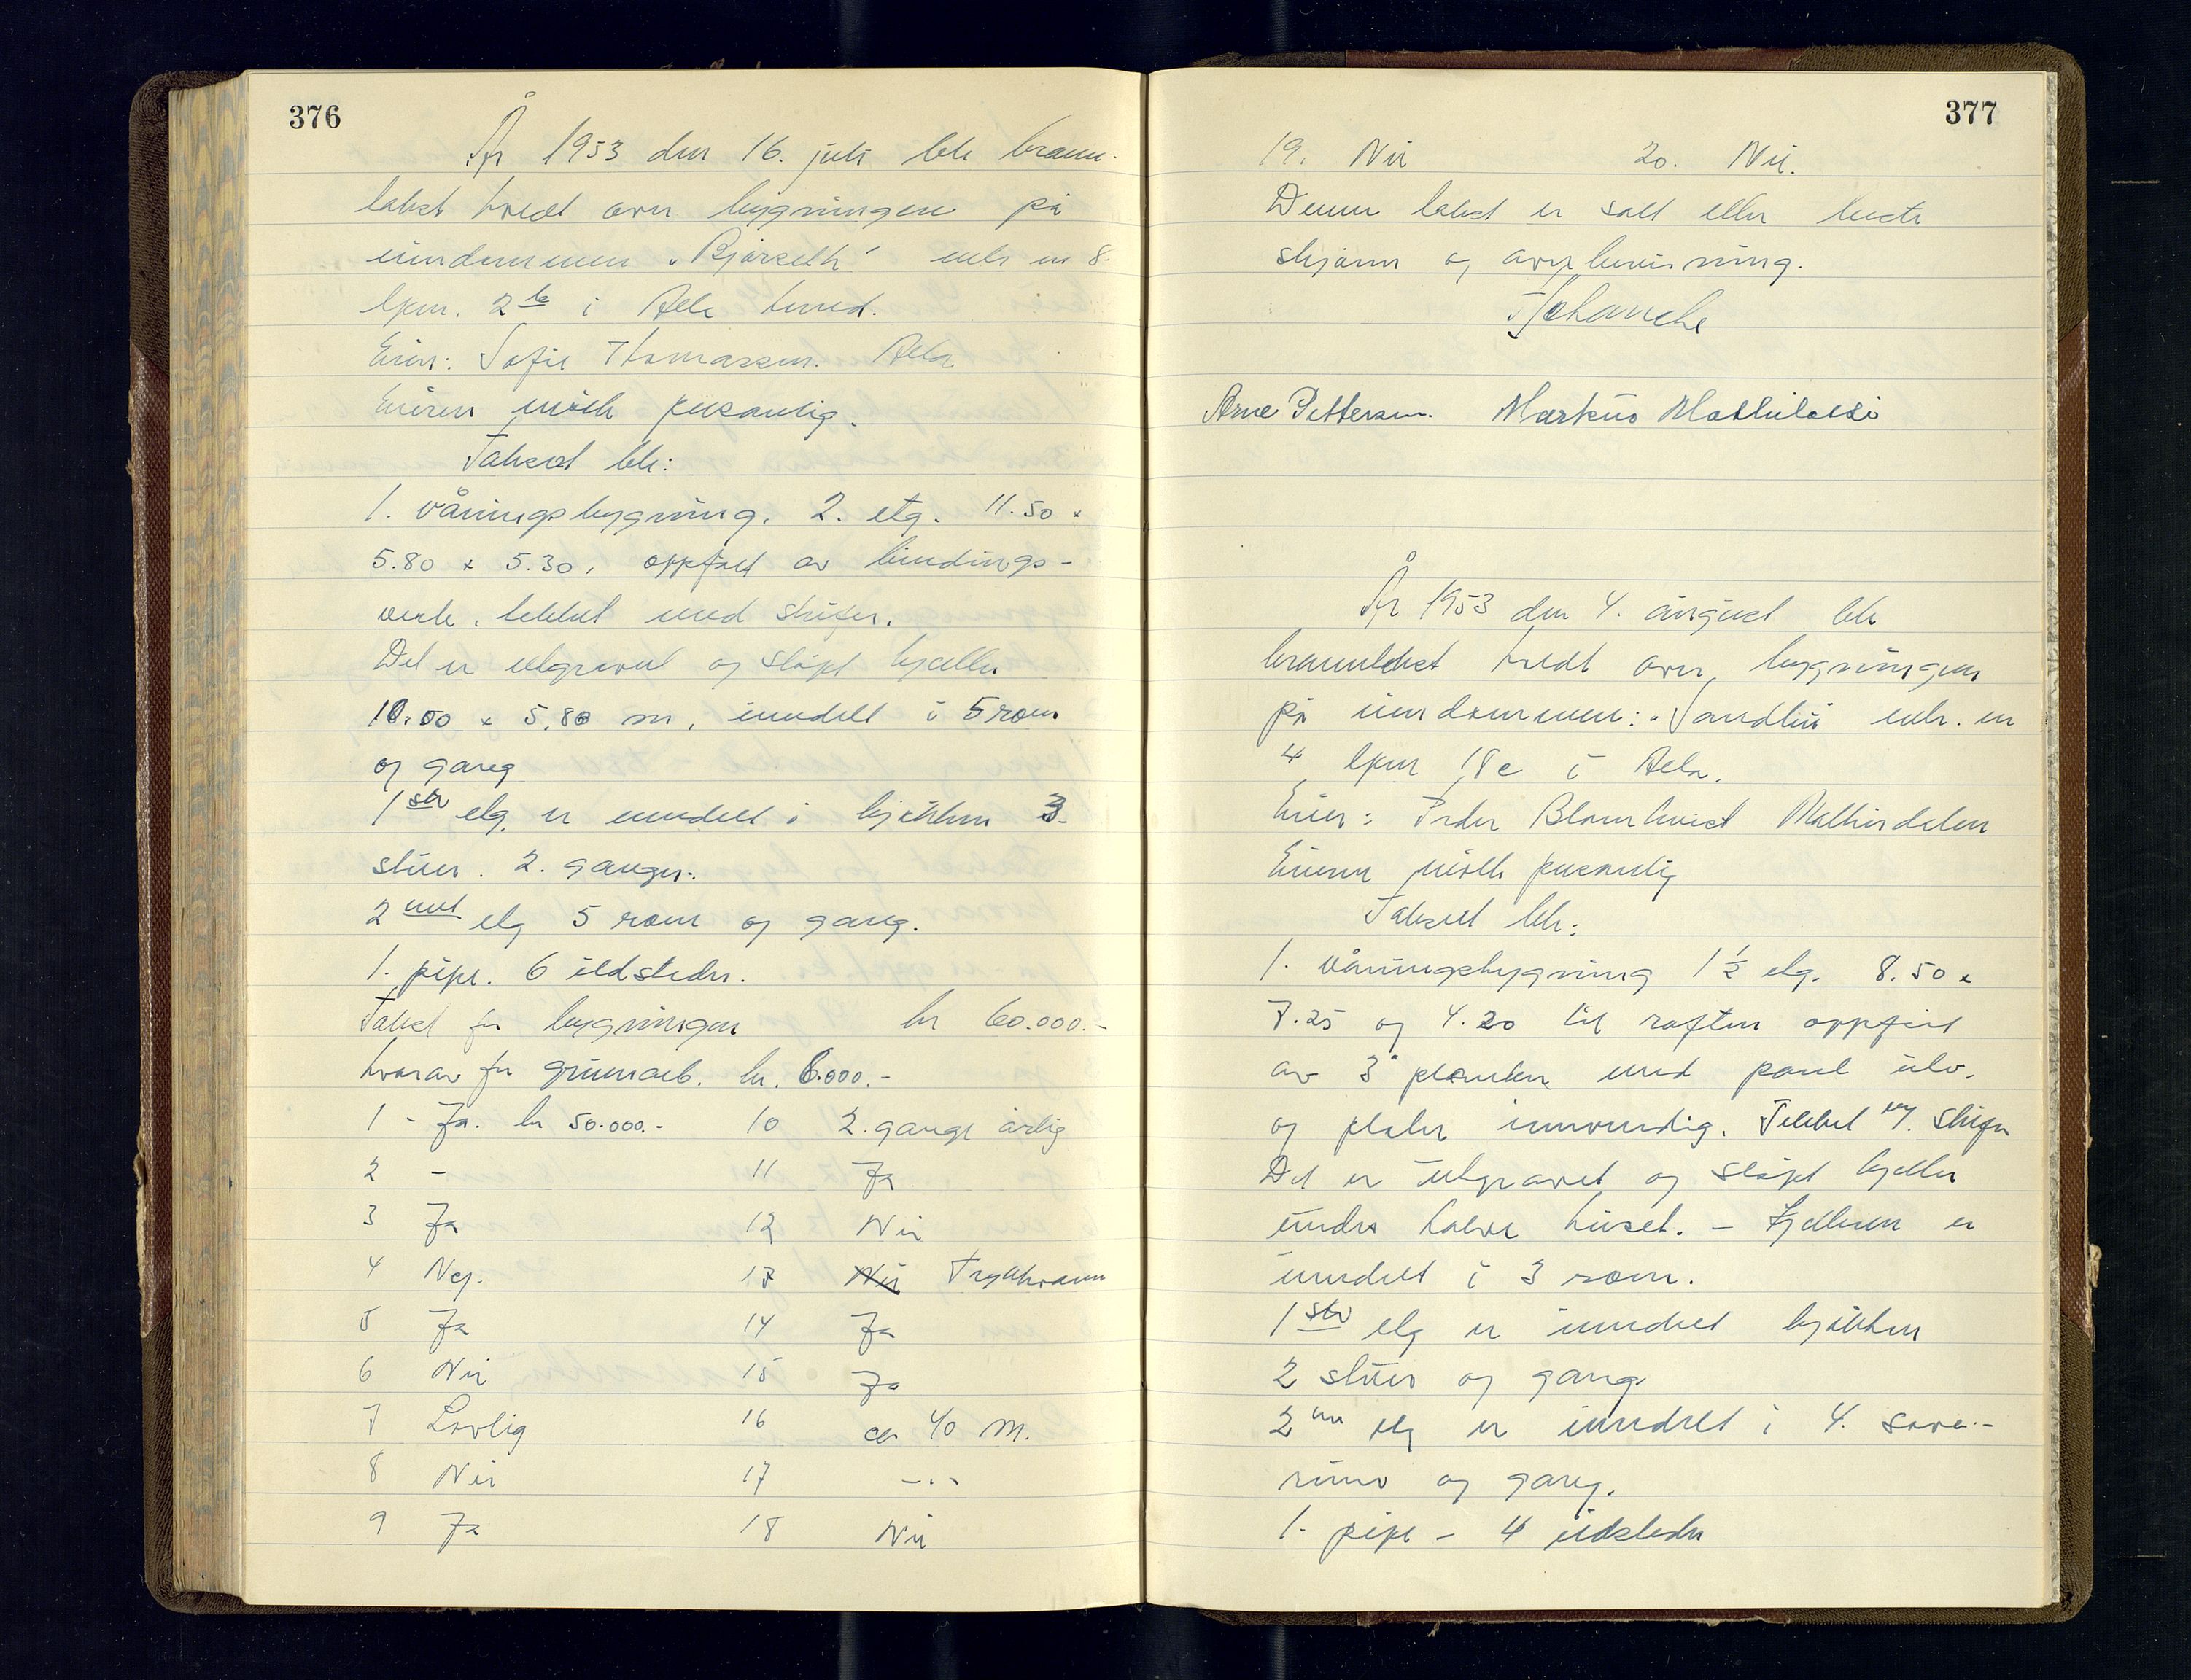 376
År 1953 den 16. juli ble brann-
takst holdt over bygningen på
eiendommen "Bjørseth" mtr nr 8.
lpnr. 2 i Alta herred.
Eier: Sofie Thomassen. Alta
Eieren møtte personlig.
Taksert ble:
1. våningsbygning. 2. etg. 11.50 x
5.80 x 5.30. oppført av bindings-
verk. tekket med skifer.
Det er utgravet og støpt kjeller
10.00 x 5.80 m. inndelt i 5 rom
og gang
1ste etg. er inndelt i kjøkken 3
stuer. 2. ganger.
2net etg 5 rom og gang.
1. pipe. 6 ildsteder.
Takst for bygningen kr 60.000.-
hvorav for grunnarb. kr. 6.000.-
1 - Ja. kr 50.000.- 10 2. gange årlig
2 - 11 Ja
3 Ja 12 Nei
4 Nej. 13 Nei Trykkvann
5 Ja 14 Ja
6 Nei 15 Ja
7 Lovlig 16 ca 40 m.
8 Nei 17 -..
9 Ja 18 Nei
377
19. Nei 20. Nei.
Denne takst er satt etter beste
skjønn og overbevisning.
Arne Pettersen. Markus
År 1953 den 4. august ble
branntakst holdt over bygningen
på eiendommen: "Sandliu mtr. nr
4 lpnr 18c i Alta.
Eier: Peder Blomkvist Mathisdalen
Eieren møtte personlig
Taksert ble:
1. våningsbygning 1 1/2 etg. 8.50 x
7.25 og 4.20 til raften oppført
av 3" planker med panel utv.
og plater innvendig. Tekket m/. skifer
Det er utgravet og støpt kjeller
under halve huset. - Kjelleren er
inndelt i 3 rom.
1ste etg er inndelt kjøkken
2 stuer og gang
2nn etg er inndelt i 4. sove-
rum og gang.
1. pipe - 4 ildsteder